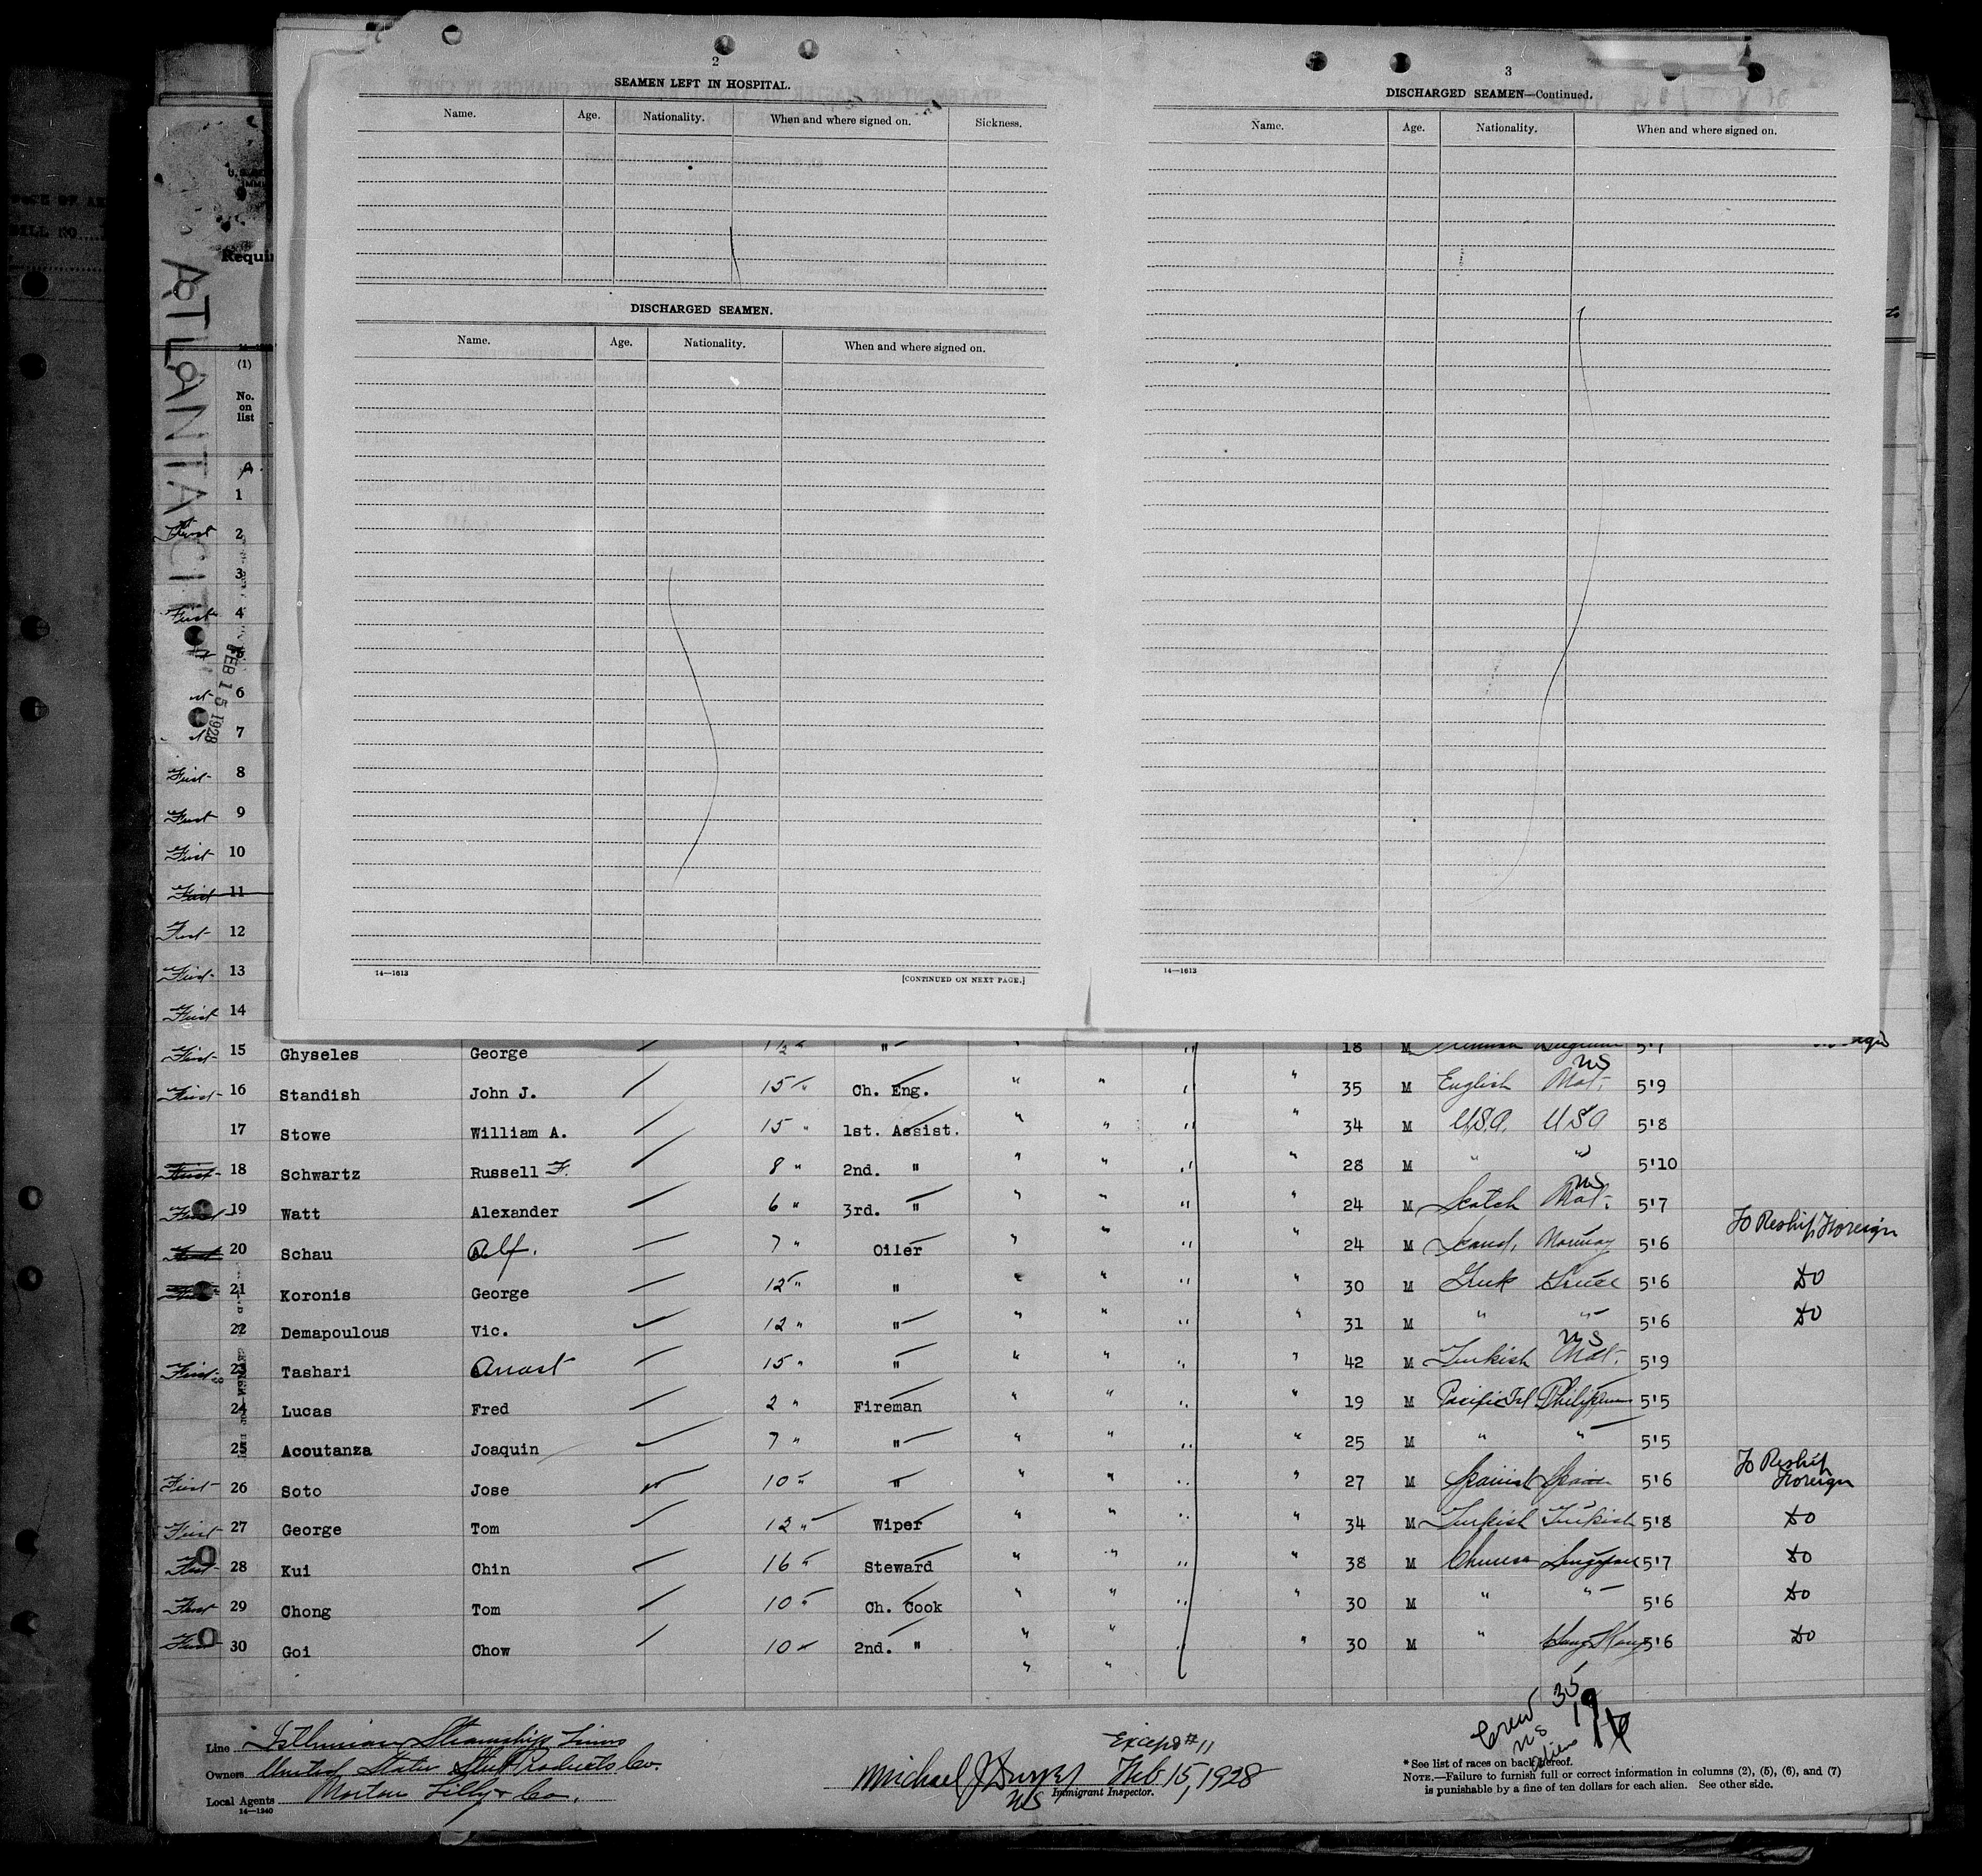 2
SEAMEN LEFT IN HOSPITAL.
Name. Age. Nationality. When and where signed on. Sickness.
DISCHARGED SEAMEN.
Name. Age. Nationality. When and where signed on.
14—1613 [CONTINUED ON NEXT PAGE.]
3
DISCHARGED SEAMEN—Continued.
Name. Age. Nationality. When and where signed on.
14—1613
ATLANTA CITY
FEB 15 1928
(1)
No.
on
list
1
First 2
3
First 4
6
7
First 8
First 9
First 10
First 11
First 12
First 13
First 14
First 15 Ghyseles George 1½ " " " " " 18 M 5'7
First 16 Standish John J. 15 " Ch. Eng. " " " " 35 M English US Nat. 5'9
17 Stowe William A. 15 " 1st. Assist. " " " " 34 M U.S.A. USA 5'8
First 18 Schwartz Russell F. 8 " 2nd. " " " " " 28 M " " 5'10
First 19 Watt Alexander 6 " 3rd. " " " " " 24 M Scotch US Nat. 5'7
First 20 Schau Alf. 7 " Oiler " " " " 24 M Scand. Norway 5'6 To Reship Foreign
First 21 Koronis George 12 " " " " " " 30 M Greek Greece 5'6 do
22 Demapoulous Vic. 12 " " " " " " 31 M " " 5'6 do
First 23 Tashari 15 " " " " " " 42 M Turkish US Nat. 5'9
24 Lucas Fred 2 " Fireman " " " " 19 M Pacific Isl Philippines 5'5
25 Acoutanza Joaquin 7 " " " " " " 25 M " " 5'5
First 26 Soto Jose 10 " " " " " " 27 M Spanish Spain 5'6 To Reship Foreign
First 27 George Tom 12 " Wiper " " " " 34 M Turkish Turkish 5'8 do
First 28 Kui Chin 16 " Steward " " " " 38 M Chinese Singapore 5'7 do
First 29 Chong Tom 10 " Ch. Cook " " " " 30 M " " 5'6 do
First 30 Goi Chow 10 " 2nd. " " " " " 30 M " Hong Kong 5'6 do
" "
Crew 35
US 19
Aliens 16
Line Isthmian Steamship Lines
Owners United States Steel Products Co.
Local Agents Morton Lilly & Co.
14—1240
Except #11
Michael J Dwyer Feb 15, 1928
Immigrant Inspector.
* See list of races on back hereof.
NOTE.—Failure to furnish full or correct information in columns (2), (5), (6), and (7)
is punishable by a fine of ten dollars for each alien. See other side.